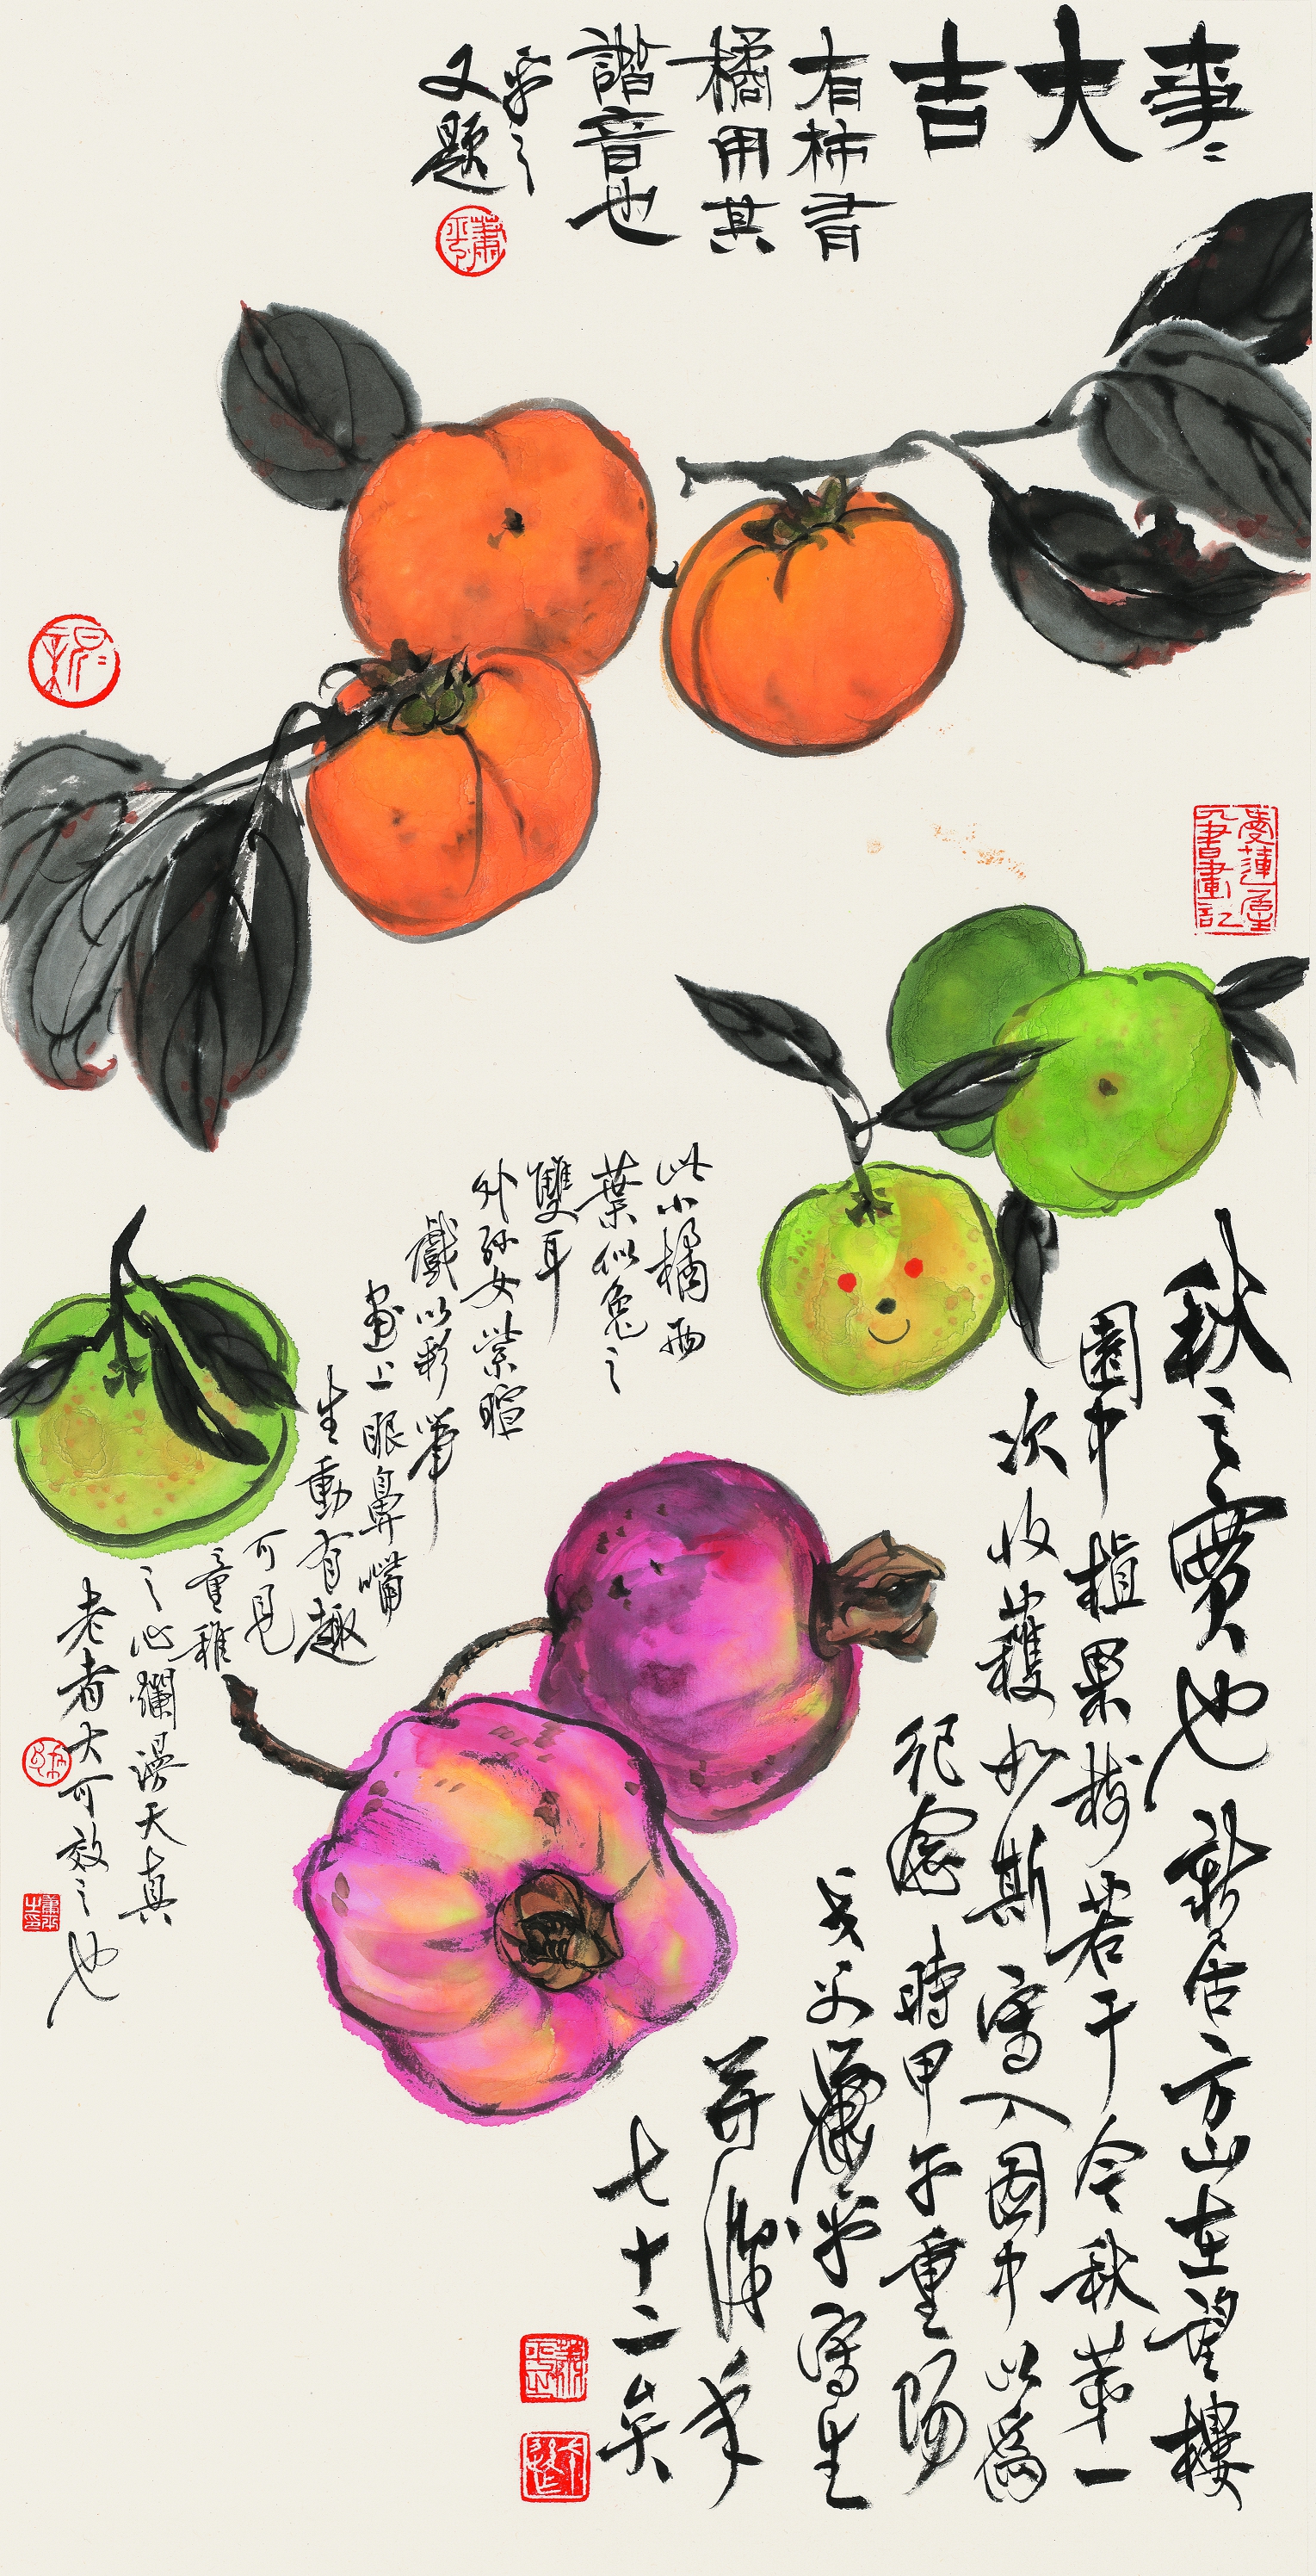 事〻大吉
有柿有
橘用其
諧音也
平之
又題
秋之實也新居方山在望樓
園中植果樹若干今秋第一
次收穫如斯寫入圖中以為
紀念時甲午重陽
蕭平寫生
并識年
七十二矣
此小橘兩
葉似兔之
雙耳
外孫女紫暄
戲以彩筆
畫上眼鼻嘴
生動有趣
可見
童稚
之心爛漫天真
老者大可效之也
愛蓮居
書畫記